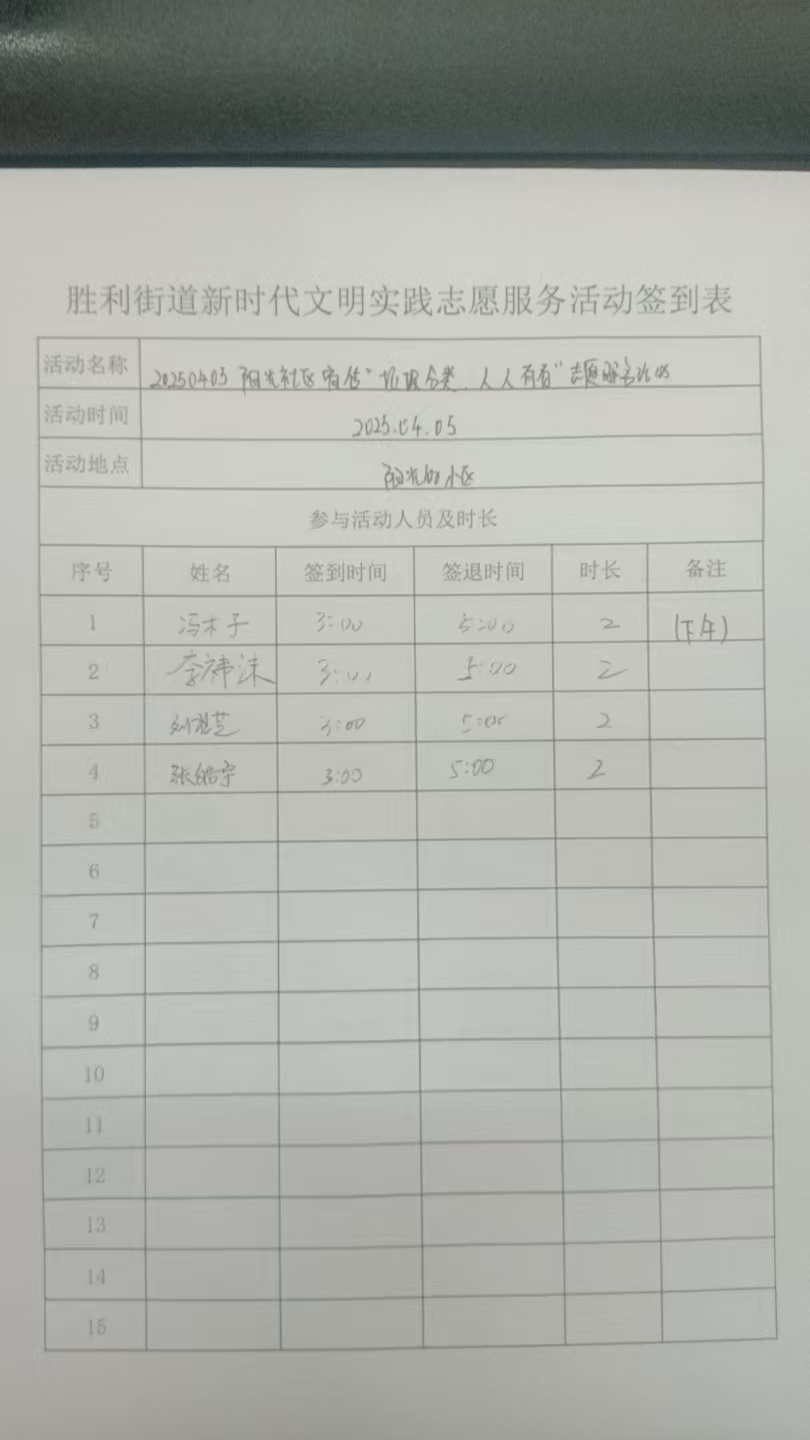 胜利街道新时代文明实践志愿服务活动签到表
活动名称 20250405 阳光社区宣传"垃圾分类,人人有责"志愿服务活动
活动时间 2025.04.05
活动地点 阳光 小区
参与活动人员及时长
序号 姓名 签到时间 签退时间 时长 备注
1 冯木子 3:00 5:00 2 (下午)
2 李祎沫 3:00 5:00 2
3 3:00 5:00 2
4 张皓宇 3:00 5:00 2
5
6
7
8
9
10
11
12
13
14
15